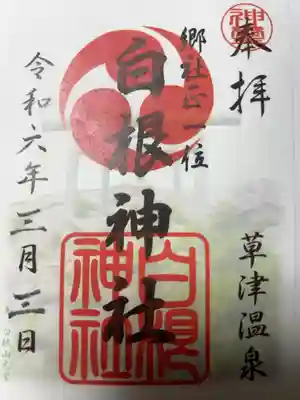 奉拝
草津温泉
郷社正一位
白根神社
白根
神社
令和六年三月三日